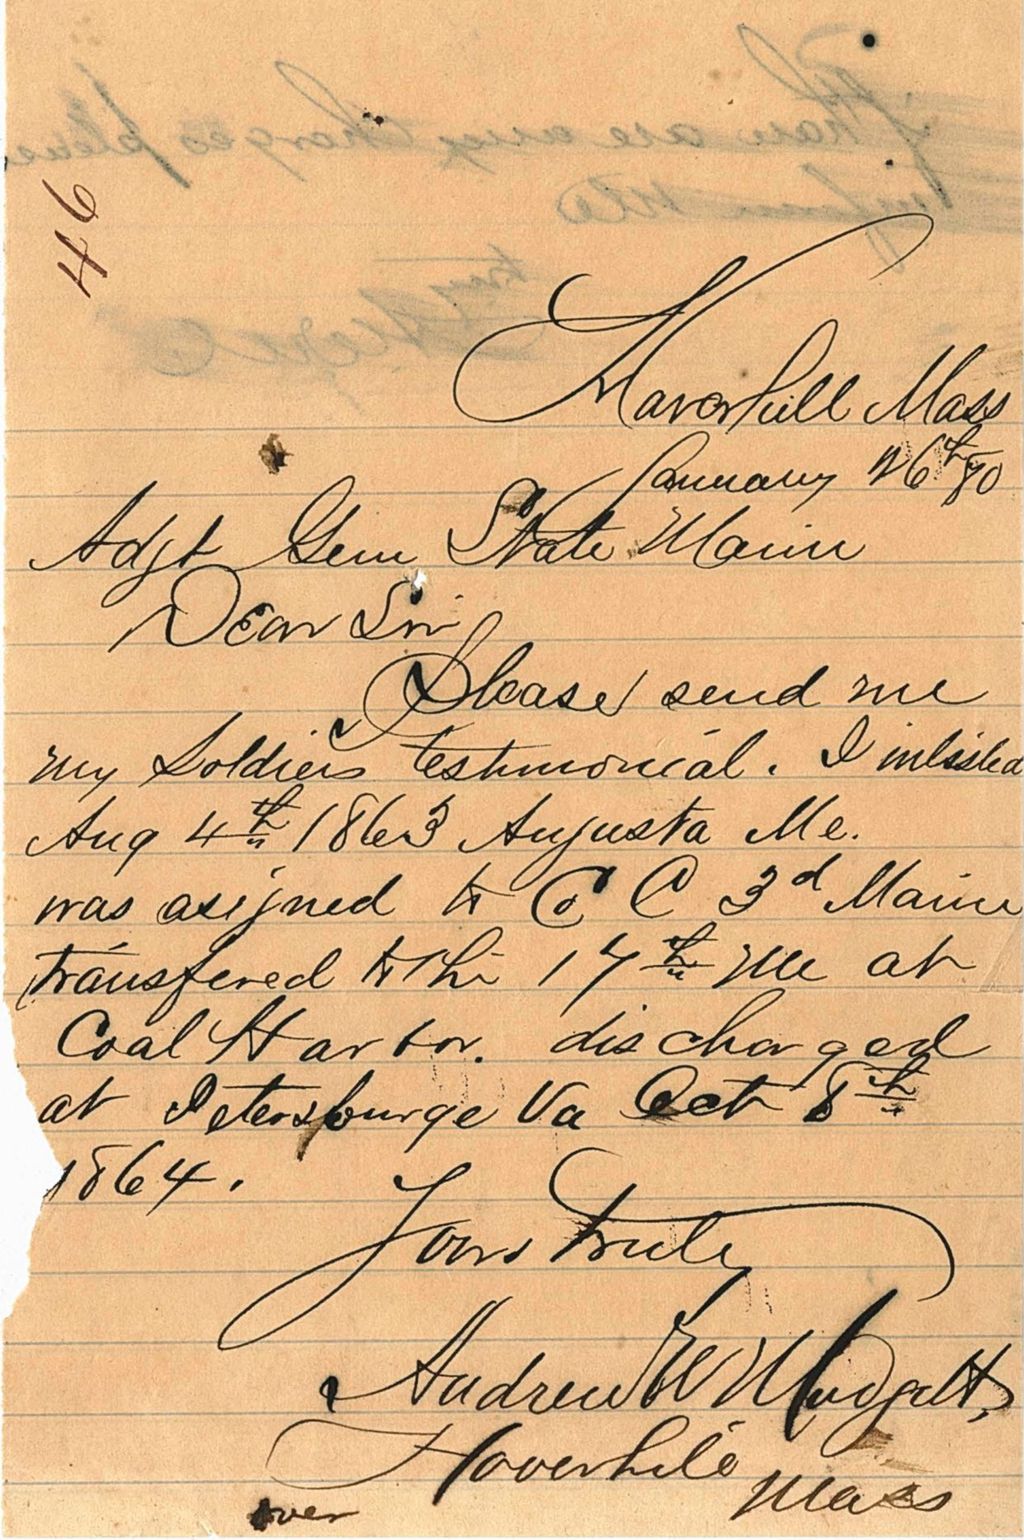 46
Haverhill Mass
January 26th 80
Adgt Gen State Maine
Dear Sir
Please send me
my Soldiers testimonial. I inlisted
Aug 4th 1863 Augusta Me.
was asigned to Co C 3d Maine
transfered to the 17th Me at
Coal Harbor. discharged
at Petersburge Va Oct 8th
1864.
Yours truly
Andrew W Mudgett,
Haverhill
Mass
over